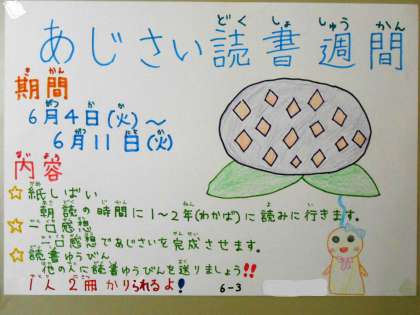 あじさい読書週間
どく しょ しゅう かん
期間
き かん
6月4日(火)〜
がつ か か
6月11日(火)
がつ にち か
内容
ない よう
☆紙しばい
朝読の時間に1〜2年(わかば)に読みに行きます。
☆一口感想
一口感想であじさいを完成させます。
☆読書ゆうびん
他の人に読書ゆうびんを送りましょう!!
1人2冊かりられるよ!
6-3